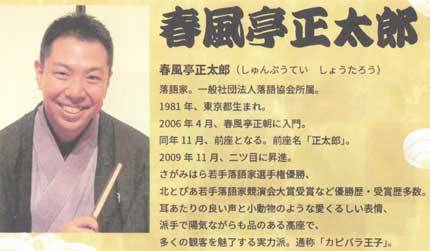 春風亭正太郎
春風亭正太郎（しゅんぷうてい　しょうたろう）
落語家。一般社団法人落語協会所属。
1981年、東京都生まれ。
2006年4月、春風亭正朝に入門。
同年11月、前座となる。前座名「正太郎」。
2009年11月、二ツ目に昇進。
さがみはら若手落語家選手権優勝、
北とぴあ若手落語家競演会大賞受賞など優勝歴・受賞歴多数。
耳あたりの良い声と小動物のような愛くるしい表情、
派手で陽気ながらも品のある高座で、
多くの観客を魅了する実力派。通称「カピバラ王子」。